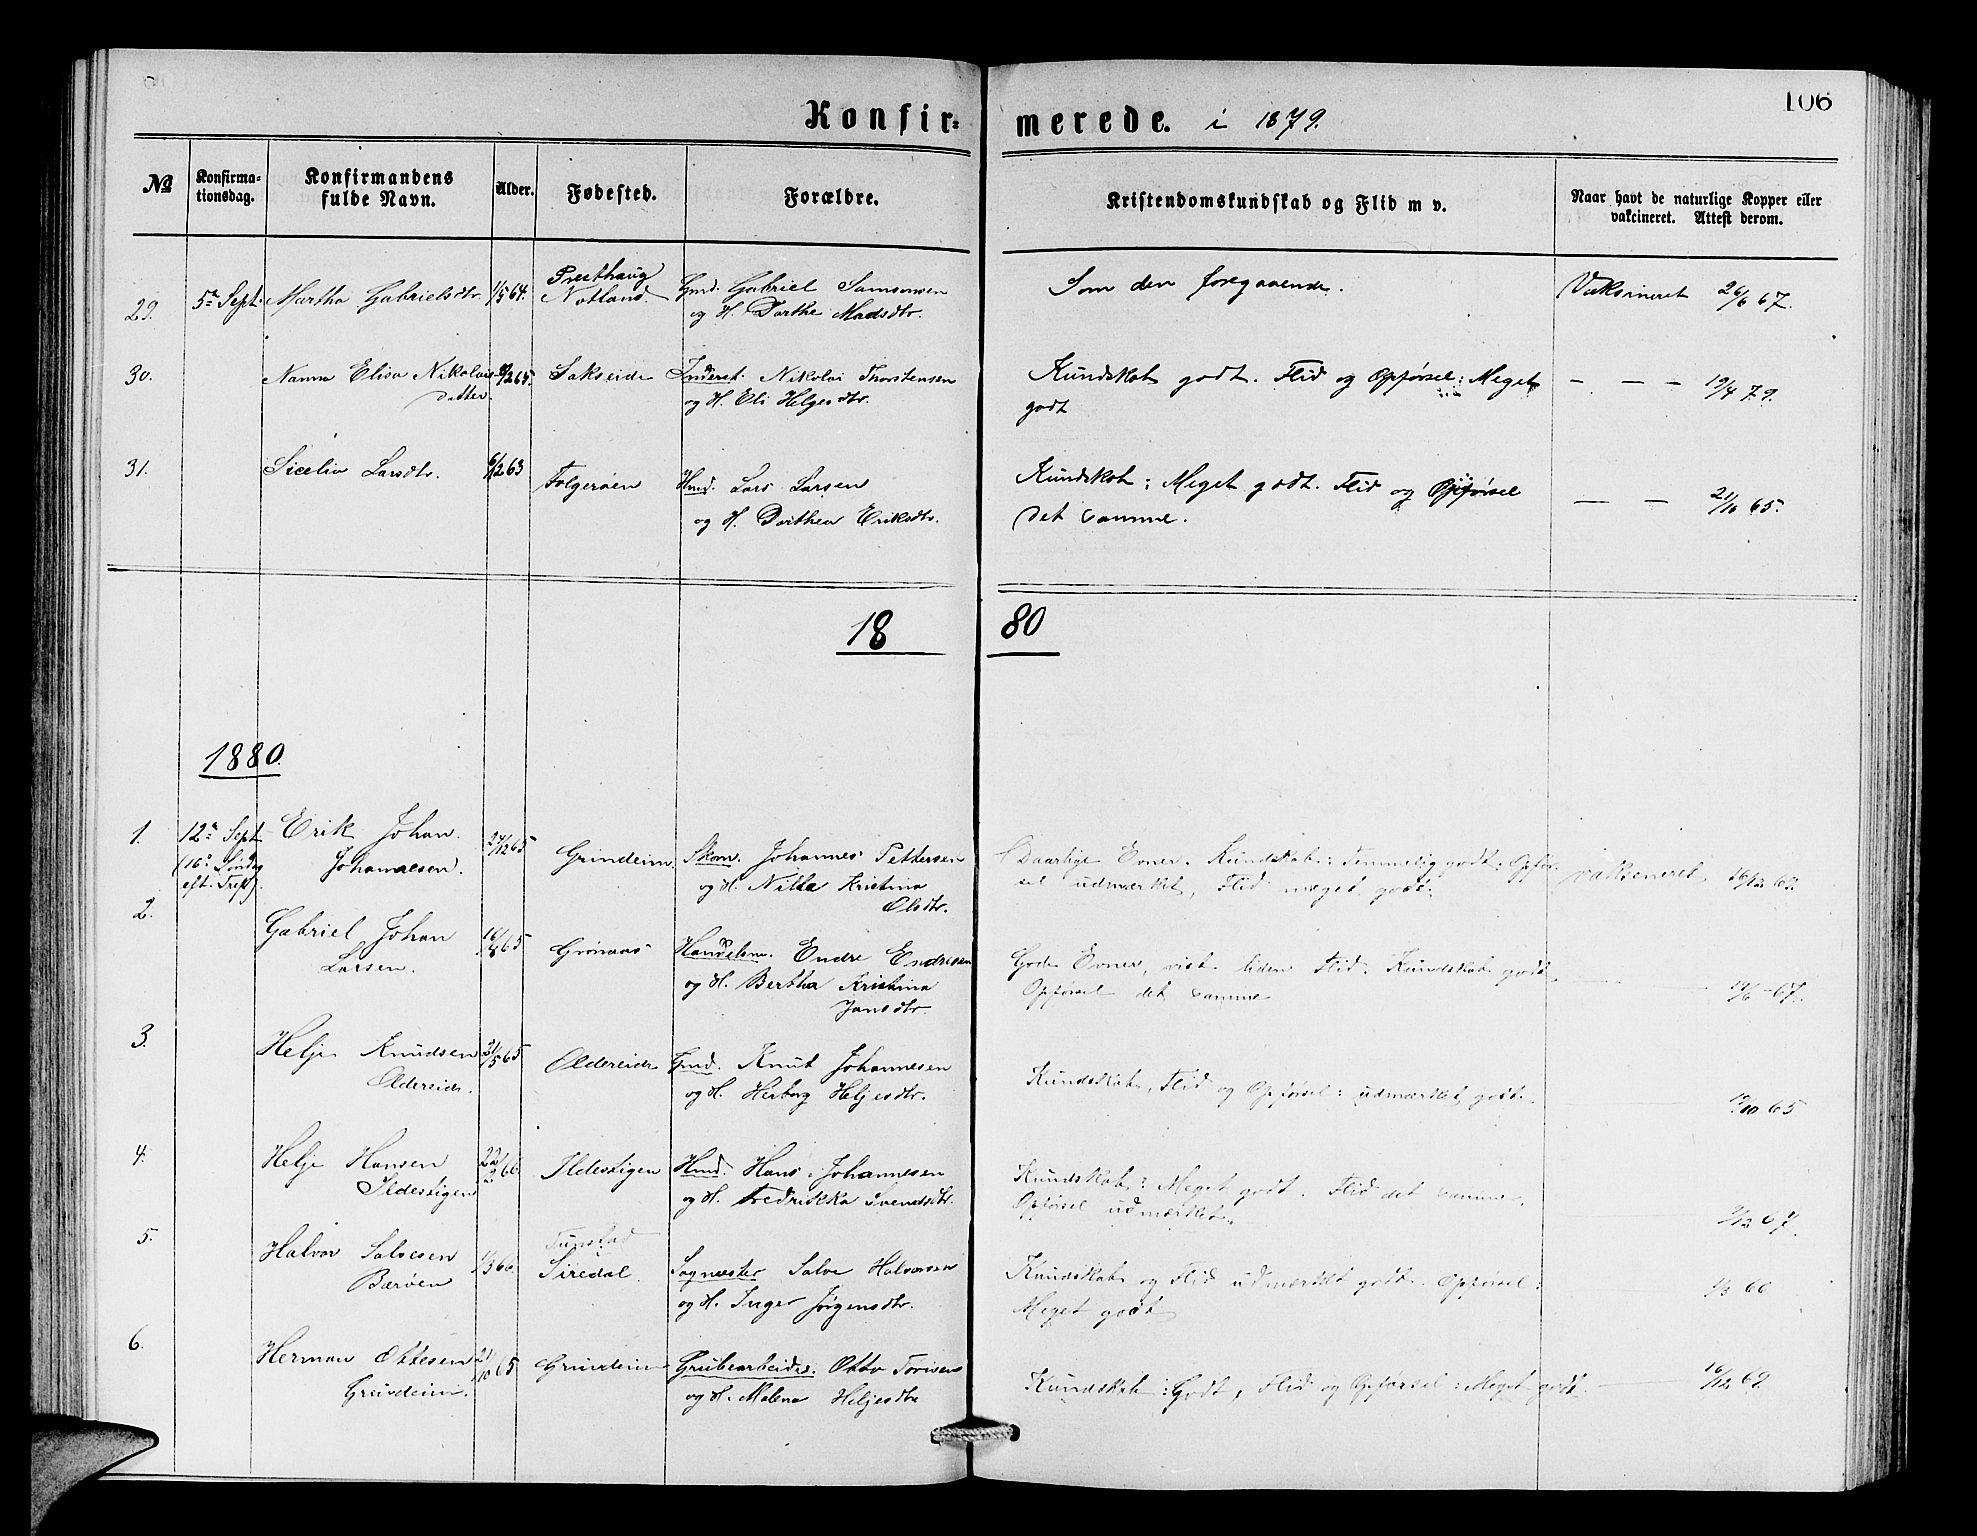 106
Konfir= merede. i 1879.
No
Konfirma=
tionsdag.
Konfirmandens
fulde Navn.
Alder.
Fødested.
Forældre.
Kristendomskundskab og Flid m v.
Naar havt de naturlige Kopper eller
vakcineret. Attest derom.
29. 5te Sept. Martha Gabrielsdtr. 1/5 64. Presthaug
Notland. Gmd. Gabriel Samsonsen
og H. Dorthe Madsdtr.
Som den foregaaende.
Vaksineret 26/6 67.
30. Nanna Elisa Nikolais
datter. /2 65. Sakseide Inderst. Nikolai Thorstensen
og H. Eli Helgesdtr.
Kundskab godt. Flid og Opførsel: Meget
godt
— — — 19/4 79.
31. Siselia Larsdtr. 6/12 63 Følgerøen Hmd. Lars Larsen
og H. Dorthea Eriksdtr.
Kundskab: Meget godt. Flid og Opførsel
det samme.
— — 21/10 65.
18 80
1880.
1. 12te Sept.
(16de Søndag
eft. Tref.) Erik Johan
Johannesen. 27/12 65 Grindeim Skom. Johannes Pettersen
og H. Nilla Kristina
Olsdtr.
Daarlige Evner. Kundskab: Temmelig godt. Opfør-
sel udmærket, Flid meget godt.
vaksineret 16/12 69.
2. Gabriel Johan
Larsen. 16/8 65 Grønaas Handelsm. Endre Endresen
og H. Bertha Kristina
Jansdtr.
Gode Evner, vist liden Flid. Kundskab godt
Opførsel det samme
/6 67.
3. Helje Knudsen
Oldereide. 31/5 65 Oldereide Gmd. Knut Johannesen
og H. Herborg Heljesdtr.
Kundskab, Flid og Opførsel: udmærket godt.
/10 65
4. Helje Hansen
Ildestigen 22/2 66. Ildestigen Hmd. Hans Johannesen
og H. Fredrikka Svendsdtr.
Kundskab: Meget godt. Flid det samme,
Opførsel udmærket.
/12 67.
5. Halvor Salvesen
Børøen 1/3 66.
Siredal. Salve Halvorsen
og H. Inger Jørgensdtr.
Kundskab og Flid udmærket godt. Opførsel:
Meget godt
66
6. Herman Ottesen
Greindeim. 21/10 65 Grindeim Grubearbeider. Otto Torisen
og H. Malena Heljesdtr
Kundskab: Godt, Flid og Opførsel: Meget godt.
16/12 69.